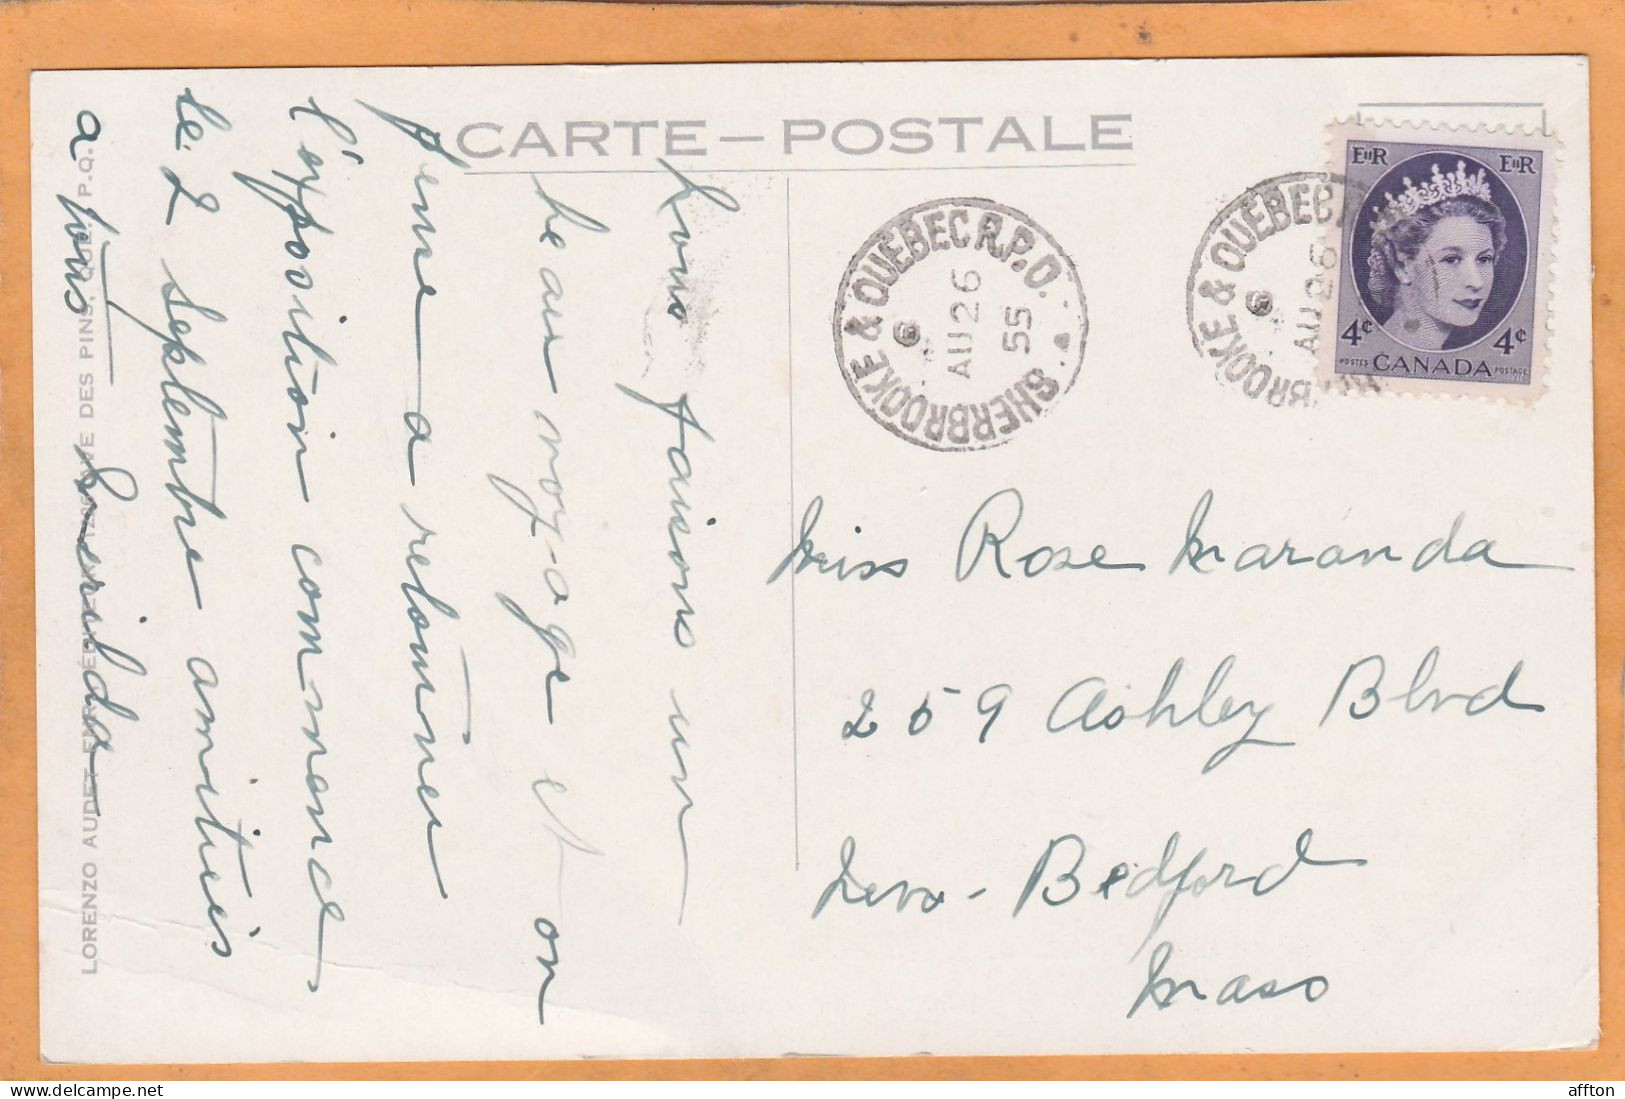 CARTE—POSTALE
Nous faisons un
beau voyage et on
pense a retourner
l'exposition commence
le 2 Septembre amitiés
a tous
LORENZO AUDET ENR. ÉDITEUR AVE DES PINS, QUÉ., P.Q.
SHERBROOKE & QUEBEC R.P.O.
AU 26
55
SHERBROOKE & QUEBEC
AU 26
EIIR EIIR
4¢ 4¢
POSTES CANADA POSTAGE
Miss Rose Maranda
259 Ashley Blvd
New-Bedford
Mass
affton